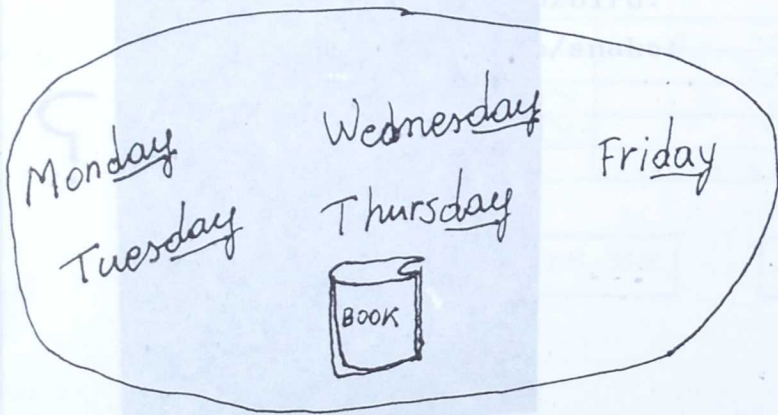 Monday
Tuesday
Wednesday
Thursday
BOOK
Friday